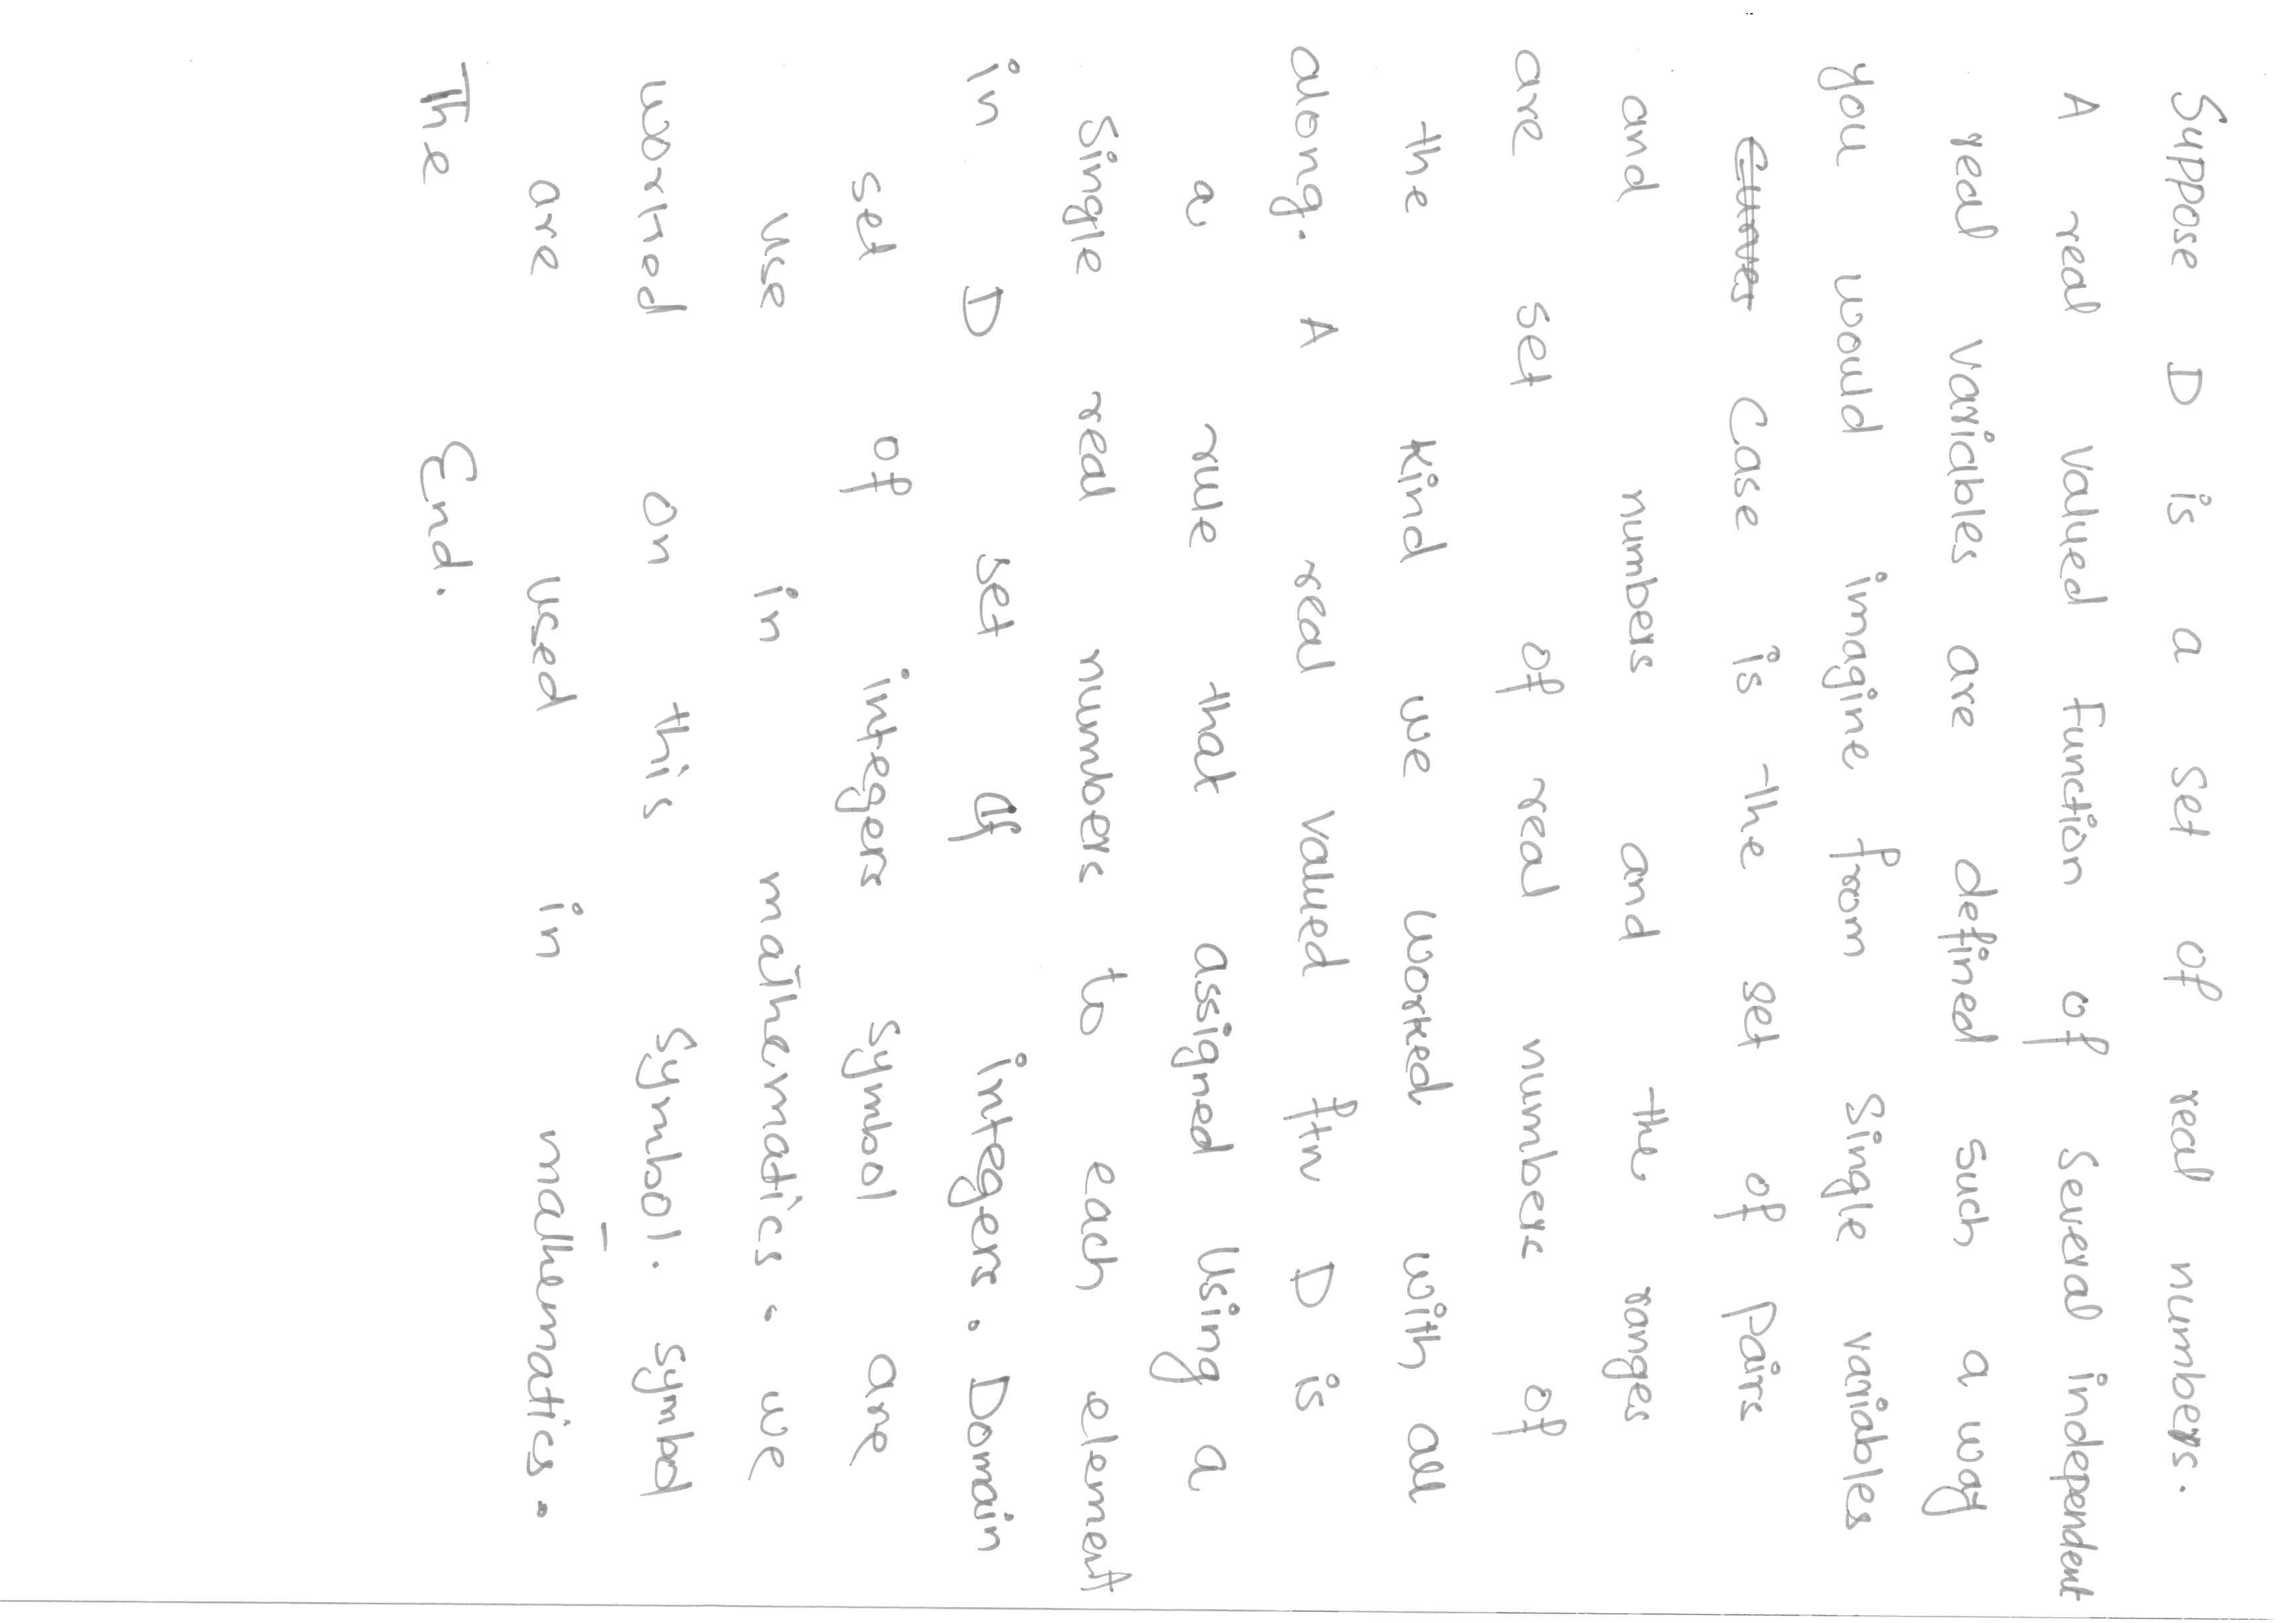 Suppose D is a set of real numbers.
A real valued Function of several independent
real variables are defined such a way
you would imagine from Single variables
Curves case is the set of pairs
and numbers and the ranges
are set of real numbers of
the kind we worked with all
along. A real valued ftn D is
a rule that assigned Using a
Single real numbers to each element
in D set of integers. Domain
set of integers symbol are
use in mathematics. we
worked on this symbol. symbol
are used in mathematics.
The End.